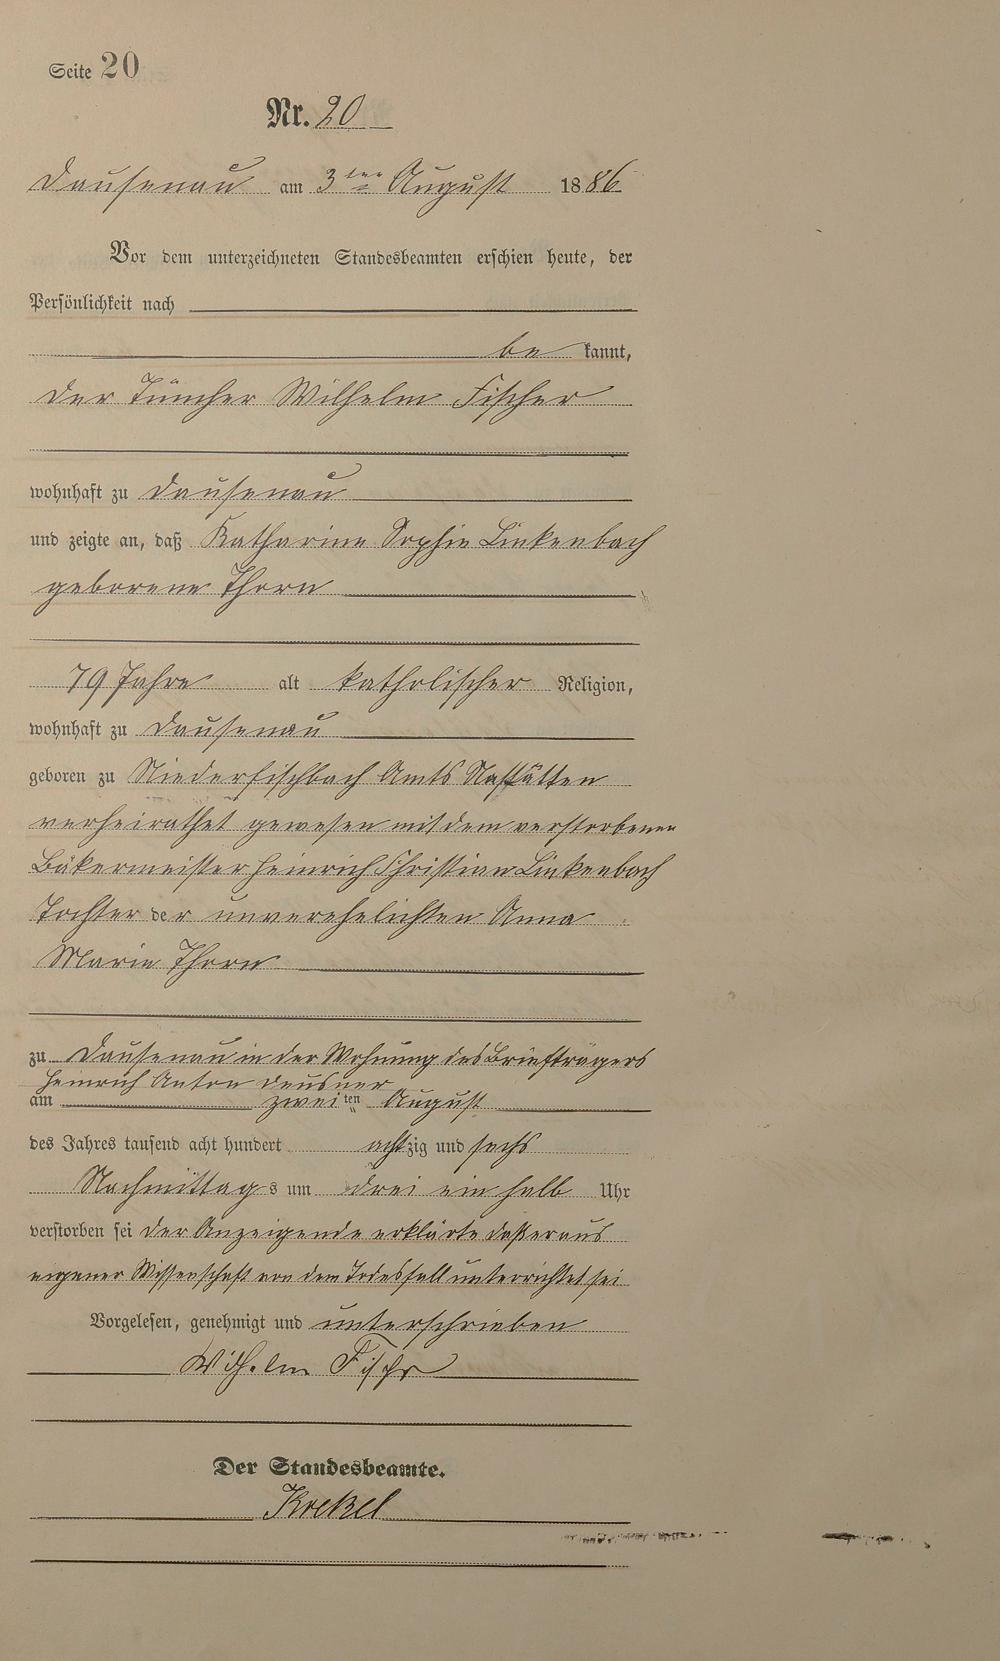 Seite 20
Nr. 20
Dausenau am 3ten August 1886
Vor dem unterzeichneten Standesbeamten erschien heute, der
Persönlichkeit nach
be kannt,
der Tüncher Wilhelm Fischer
wohnhaft zu Dausenau
und zeigte an, daß Katharine Sophie Linkenbach
geborene Thorn
79 Jahre alt katholischer Religion,
wohnhaft zu Dausenau
geboren zu Niederfischbach Amts Nastätten
verheirathet gewesen mit dem verstorbenen
Bäkermeister Heinrich Christian Linkenbach
Tochter der unverehelichten Anna
Marie Thorn
zu Dausenau in der Wohnung des Briefträgers
Heinrich Anton Deusner
am zweiten August
des Jahres tausend acht hundert achtzig und sechs
Nachmittags um drei ein halb Uhr
verstorben sei der Anzeigende erklärte daß er aus
eigener Wissenschaft von dem Todesfall unterrichtet sei
Vorgelesen, genehmigt und unterschrieben
Wilhelm Fischr
Der Standesbeamte.
Krekel